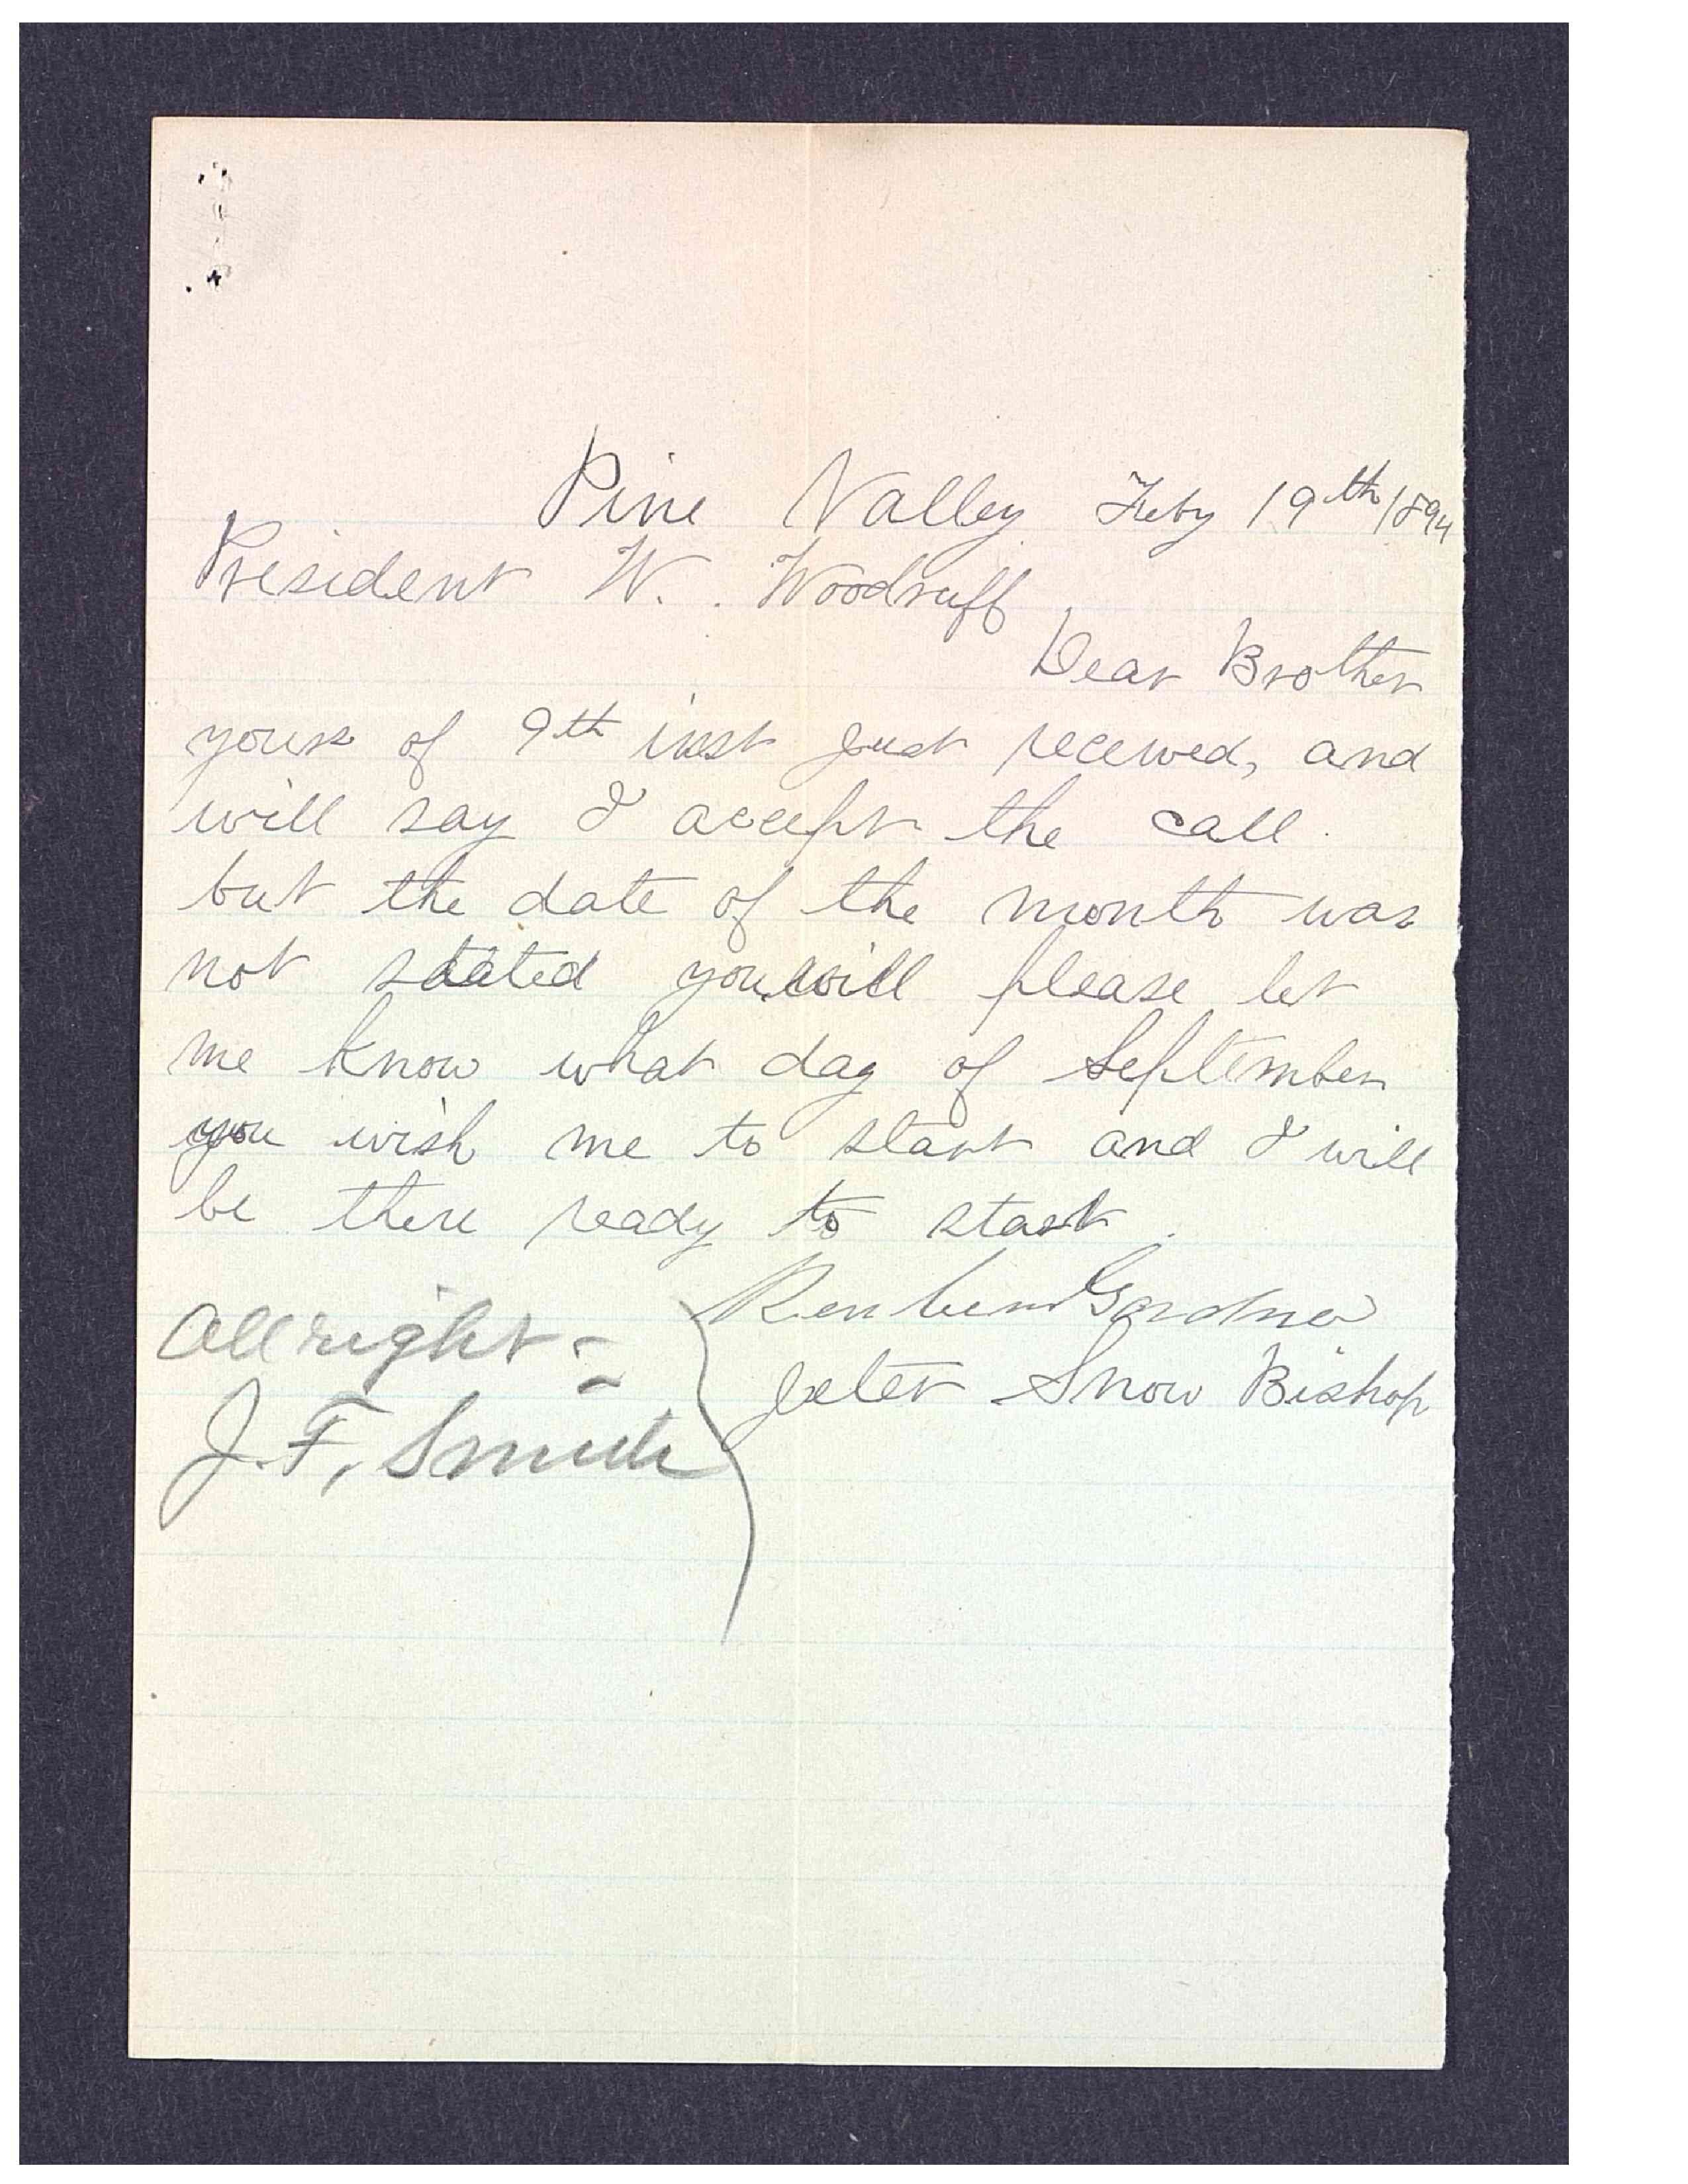 Pine Valley Feby 19th/1894
President W. Woodruff
Dear Brother
yours of 9th inst just received, and
will say I accept the call.
but the date of the month was
not stated you will please let
me know what day of September
you wish me to start and I will
be there ready to start.
Reuben Gardner
Jeter Snow Bishop
All right -
J. F. Smith